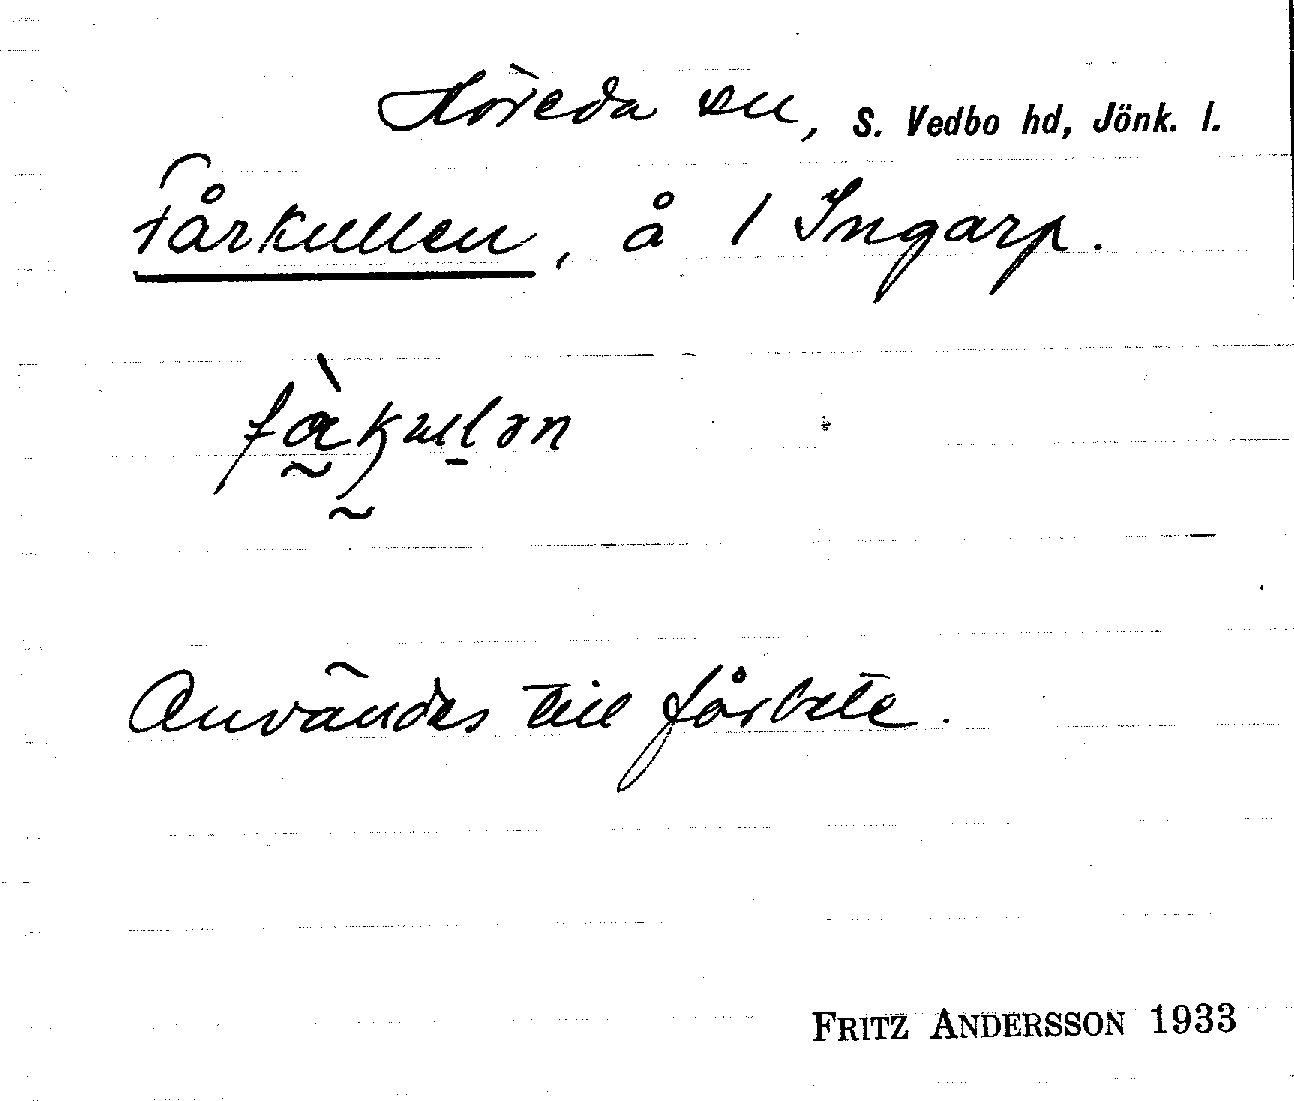 Höreda sn, S. Vedbo hd, Jönk. l.
Fårkullen, å 1 Ingarp.
Användes till fårbete.
FRITZ ANDERSSON 1933